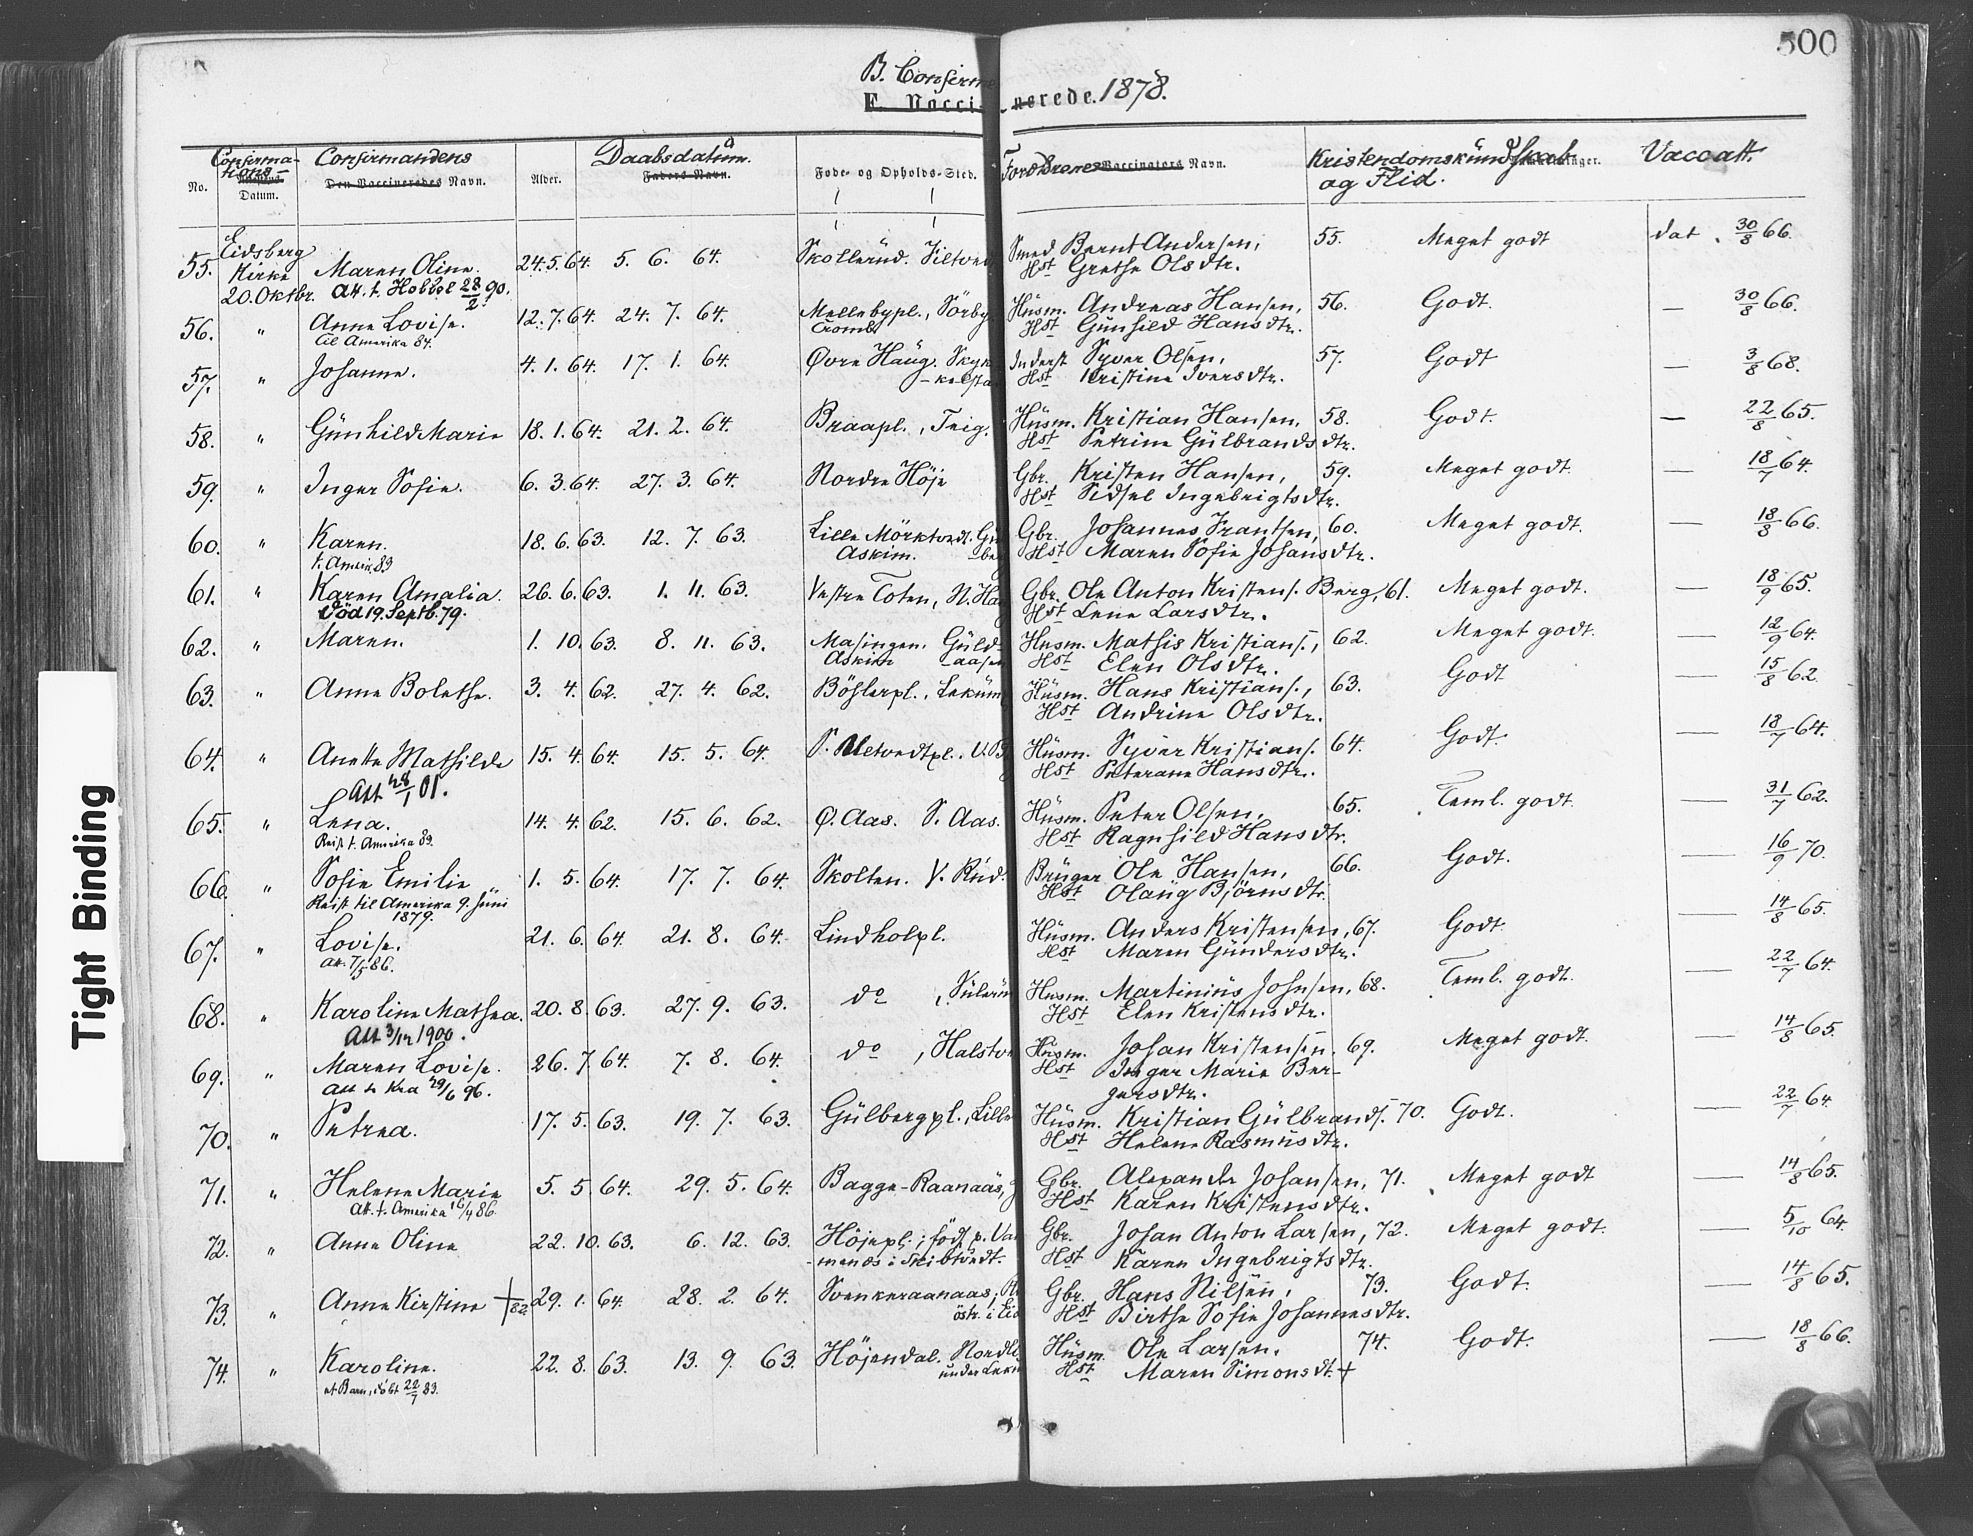 500
B. Confirme
E. Vacci-nerede. 1878.
No. Confirmations- Datum. Confirmandens Den Vaccineredes Navn. Alder. Daabsdatum. Faders Navn. Føde- og Opholds-Sted. Forældrenes Vaccinators Navn. Kristendomskundskab og Flid. Vaccatt.
55. Eidsberg Kirke 20. Oktbr. Maren Oline. 24.5.64. 5. 6. 64. Skollerud. Siltved Smed Bernt Andersen, 55. Meget godt dat. 30/8 66.
Att. t. Hobbøl 28/2 90. Hst Grethe Olsdtr.
56. " Anne Lovise. 12.7.64. 24. 7. 64. Mellebypl., Sörby Husm. Andreas Hansen, 56. Godt. — 30/8 66.
Til Amerika 84. Tromb Hst Gunhild Hansdtr.
57. " Johanne. 4.1.64. 17. 1. 64. Øvre Haug. Inderst Syver Olsen, 57. Godt — 3/8 68.
Hst Kristine Iversdtr.
58. " Gunhild Marie 18.1.64. 21. 2. 64. Braapl., Teig. Husm. Kristian Hansen, 58. Godt. — 22/8 65.
Hst Petrine Gulbrandsdtr.
59. " Inger Sofie. 6.3.64. 27. 3. 64. Nordre Höje Gbr. Kristen Hansen, 59. Meget godt. — 18/7 64.
Hst Sidsel Ingebrigtsdtr.
60. " Karen. 18.6.63. 12. 7. 63. Lille Mörktvedt. Gbr. Johannes Frantsen, 60. Meget godt. — 18/8 66.
t. Amerik. 83 Askim. Hst Maren Sofie Johansdtr.
61. " Karen Amalia. 26.6.63. 1. 11. 63. Vestre Toten, N. Gbr. Ole Anton Kristens. Berg, 61. Meget godt. — 18/9 65.
död 19. Septb. 79. Hst Lene Larsdtr.
62. " Maren. 1. 10. 63. 8. 11. 63. Masingen. Guld- Husm. Mathis Kristians., 62. Meget godt. — 12/9 64.
Askim -aasen Hst Elen Olsdtr.
63. " Anne Bolethe. 3. 4. 62. 27. 4. 62. Böhlerpl., Lekum Husm. Hans Kristians., 63. Godt — 15/8 62.
Hst Andrine Olsdtr.
64. " Anette Mathilde 15. 4. 64. 15. 5. 64. S. Ultvedtpl. Husm. Syver Kristians. 64. Godt. — 18/7 64.
Att 28/1 01. Hst Peterane Hansdtr.
65. " Lena. 14. 4. 62. 15. 6. 62. Ø. Aas. S. Aas. Husm. Peter Olsen, 65. Teml. godt. — 31/7 62.
Reist t. Amerika 83. Hst Ragnhild Hansdtr.
66. " Sofie Emilie 1. 5. 64. 17. 7. 64. Skolten. V. Rud. Bruger Ole Hansen, 66. Godt. — 16/9 70.
Reist til Amerika 9. Juni 1879. Hst Olaug Björnsdtr.
67. " Lovise. 21. 6. 64. 21. 8. 64. Lindholpl. Husm. Anders Kristensen, 67. Godt. — 14/8 65.
att. 7/5 86. Hst Maren Gundersdtr.
68. " Karoline Mathea. 20. 8. 63. 27. 9. 63. do , Husm. Martinius Johnsen, 68. Teml. godt. — 22/7 64.
Att 3/12 1900. Hst Elen Kristensdtr.
69. " Maren Lovise. 26. 7. 64. 7. 8. 64. do , Halstv Husm. Johan Kristensen. 69. Meget godt. — 14/8 65.
Att t. Kra 29/6 96. Hst Inger Marie Ber-
gersdtr.
70. " Petrea. 17. 5. 63. 19. 7. 63. Gulbergpl., Lille Husm. Kristian Gulbrands. 70. Godt. — 22/7 64.
Hst Helene Rasmusdtr.
71. " Helene Marie 5. 5. 64. 29. 5. 64. Bagge-Raanaas, Gbr. Alexander Johansen, 71. Meget godt — 14/8 65.
Att. t. Amerika 16/4 86. Hst Karen Kristensdtr.
72. " Anne Oline 22. 10. 63. 6. 12. 63. Höjepl.; födt p. Gbr. Johan Anton Larsen, 72. Meget godt. — 5/10 64.
Hst Karen Ingebrigtsdtr.
73. " Anne Kirstine † 82 29. 1. 64. 28. 2. 64. Svenkeraanaas; Gbr. Hans Nilsen, 73. Godt. — 14/8 65.
östr. i Eid Hst Birthe Sofie Johannesdtr.
74. " Karoline. 22. 8. 63. 13. 9. 63. Höjendal. Husm. Ole Larsen. 74. Godt. — 18/8 66.
et Barn, døbt 22/7 83. under Hst Maren Simonsdt. †
Tight Binding